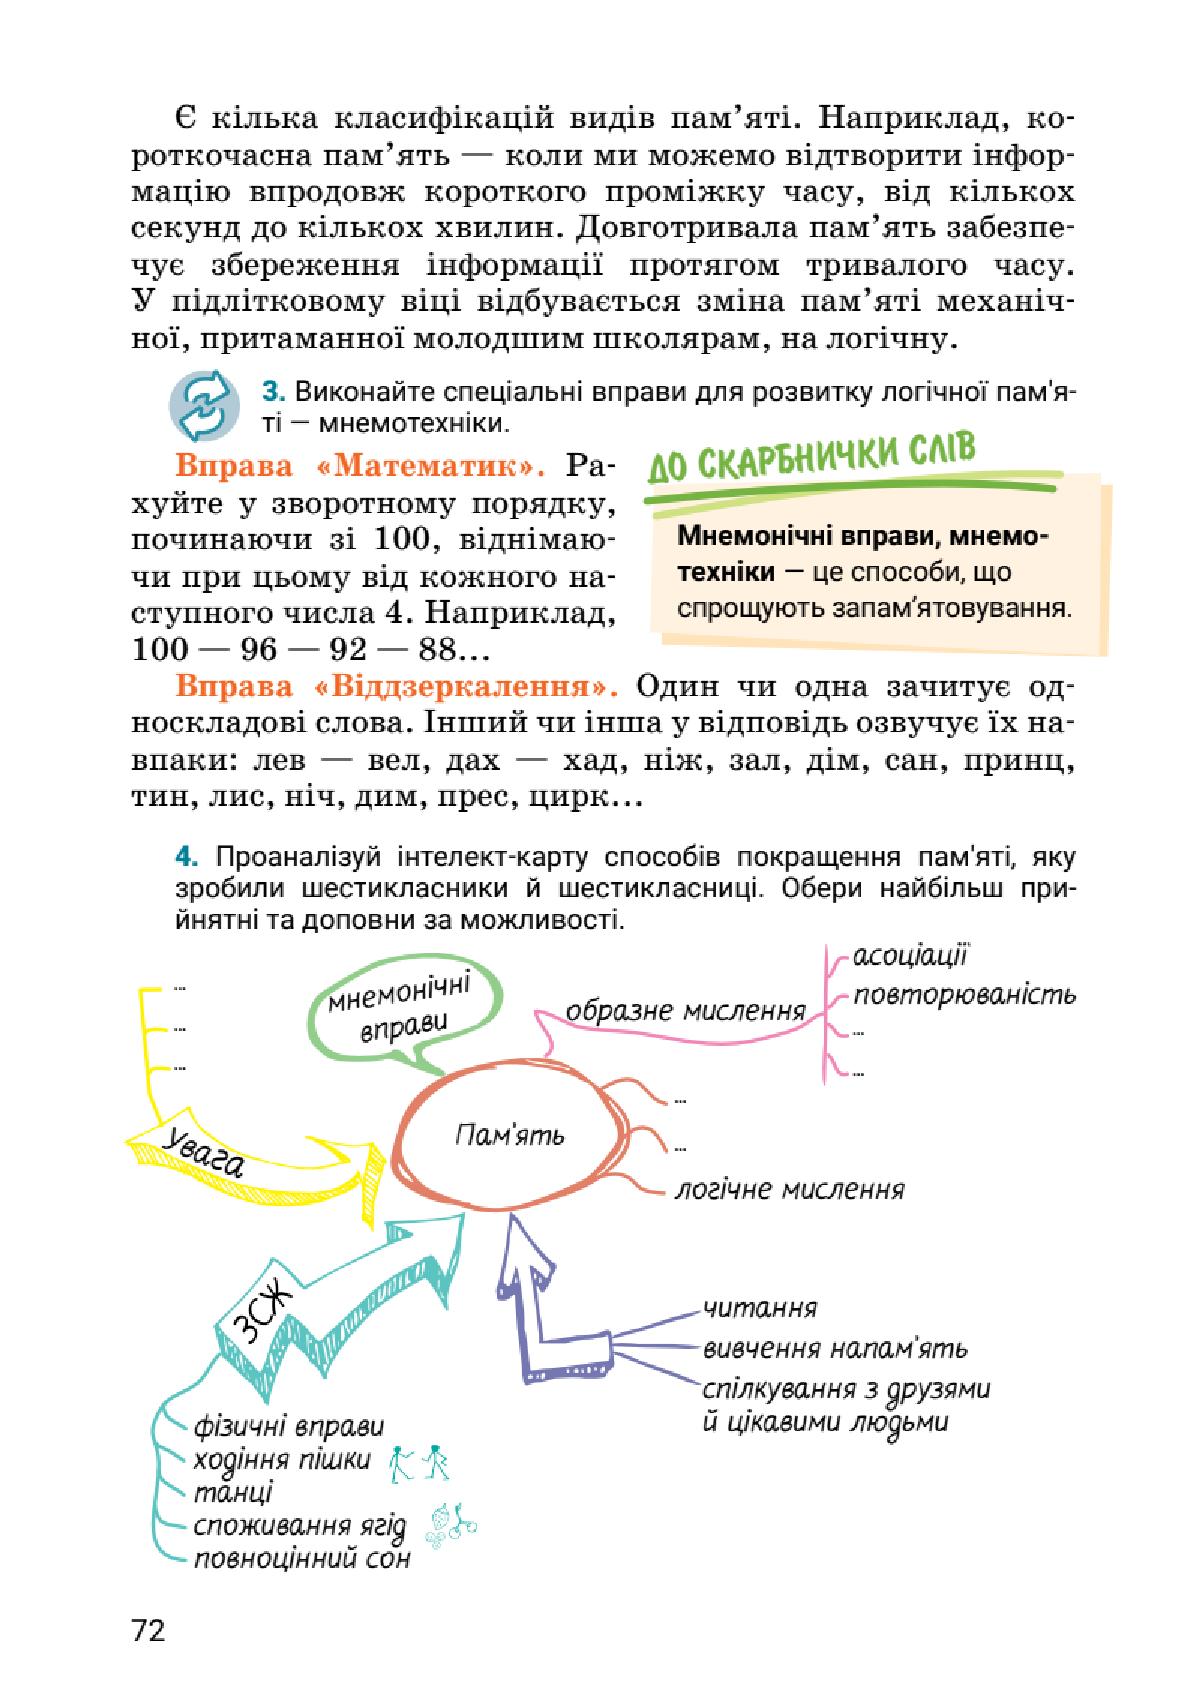 Є кілька класифікацій видів пам’яті. Наприклад, ко-
роткочасна пам’ять — коли ми можемо відтворити інфор-
мацію впродовж короткого проміжку часу, від кількох
секунд до кількох хвилин. Довготривала пам’ять забезпе-
чує збереження інформації протягом тривалого часу.
У підлітковому віці відбувається зміна пам’яті механіч-
ної, притаманної молодшим школярам, на логічну.
3. Виконайте спеціальні вправи для розвитку логічної пам'я-
ті — мнемотехніки.
Вправа «Математик». Ра-
хуйте у зворотному порядку,
починаючи зі 100, віднімаю-
чи при цьому від кожного на-
ступного числа 4. Наприклад,
100 — 96 — 92 — 88...
ДО СКАРБНИЧКИ СЛІВ
Мнемонічні вправи, мнемо-
техніки — це способи, що
спрощують запам’ятовування.
Вправа «Віддзеркалення». Один чи одна зачитує од-
носкладові слова. Інший чи інша у відповідь озвучує їх на-
впаки: лев — вел, дах — хад, ніж, зал, дім, сан, принц,
тин, лис, ніч, дим, прес, цирк...
4. Проаналізуй інтелект-карту способів покращення пам'яті, яку
зробили шестикласники й шестикласниці. Обери найбільш при-
йнятні та доповни за можливості.
...
...
...
Увага
мнемонічні
вправи
образне мислення
асоціації
повторюваність
...
...
Пам'ять
...
...
логічне мислення
ЗСЖ
фізичні вправи
ходіння пішки
танці
споживання ягід
повноцінний сон
читання
вивчення напам'ять
спілкування з друзями
й цікавими людьми
72